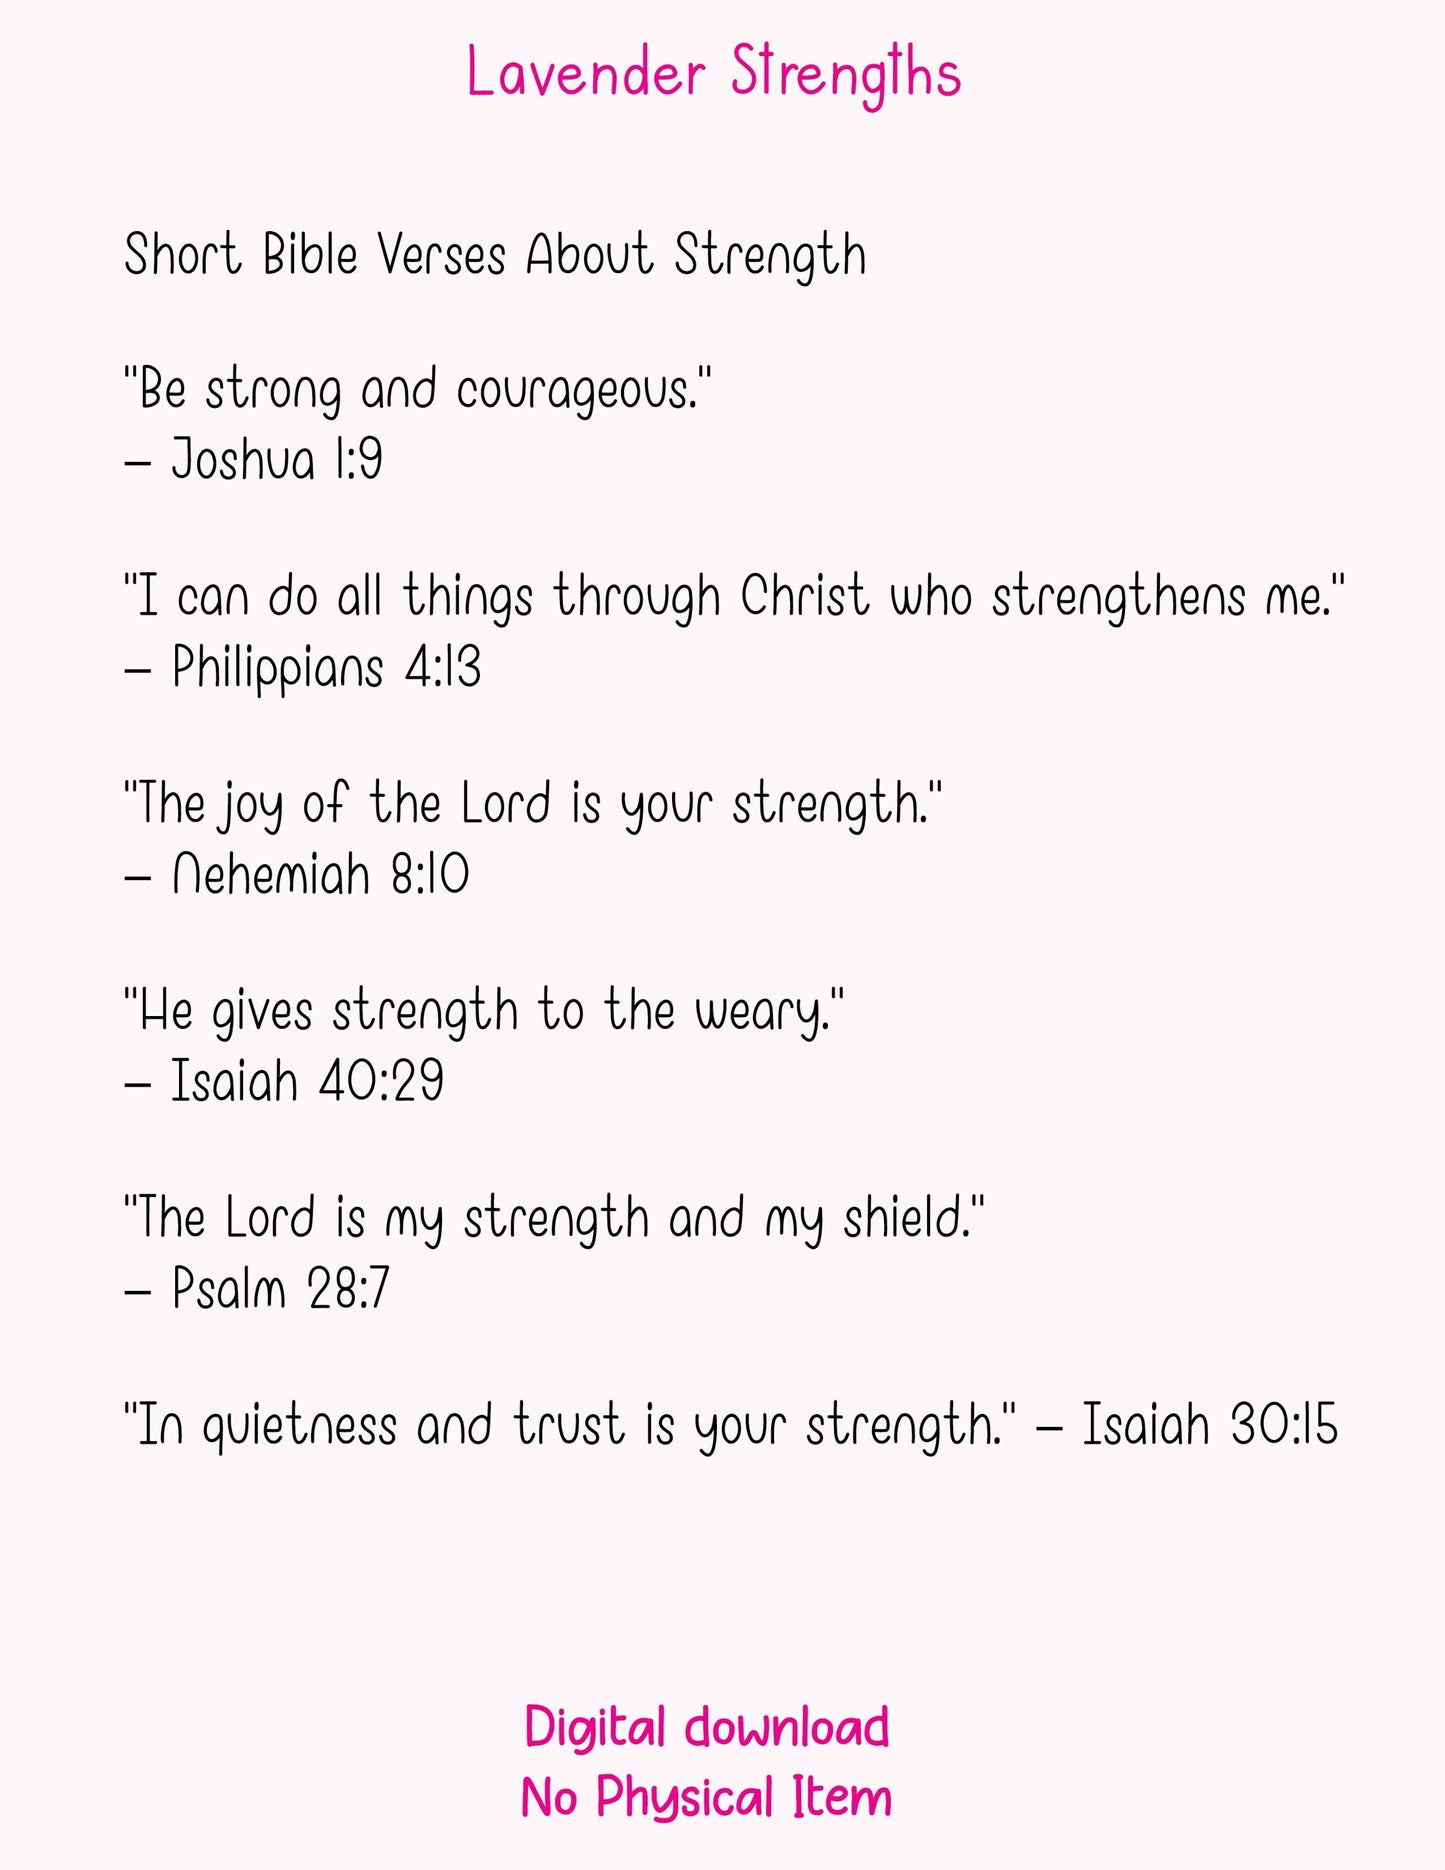 Lavender Strengths
Short Bible Verses About Strength
"Be strong and courageous."
– Joshua 1:9
"I can do all things through Christ who strengthens me."
– Philippians 4:13
"The joy of the Lord is your strength."
– Nehemiah 8:10
"He gives strength to the weary."
– Isaiah 40:29
"The Lord is my strength and my shield."
– Psalm 28:7
"In quietness and trust is your strength." – Isaiah 30:15
Digital download
No Physical Item